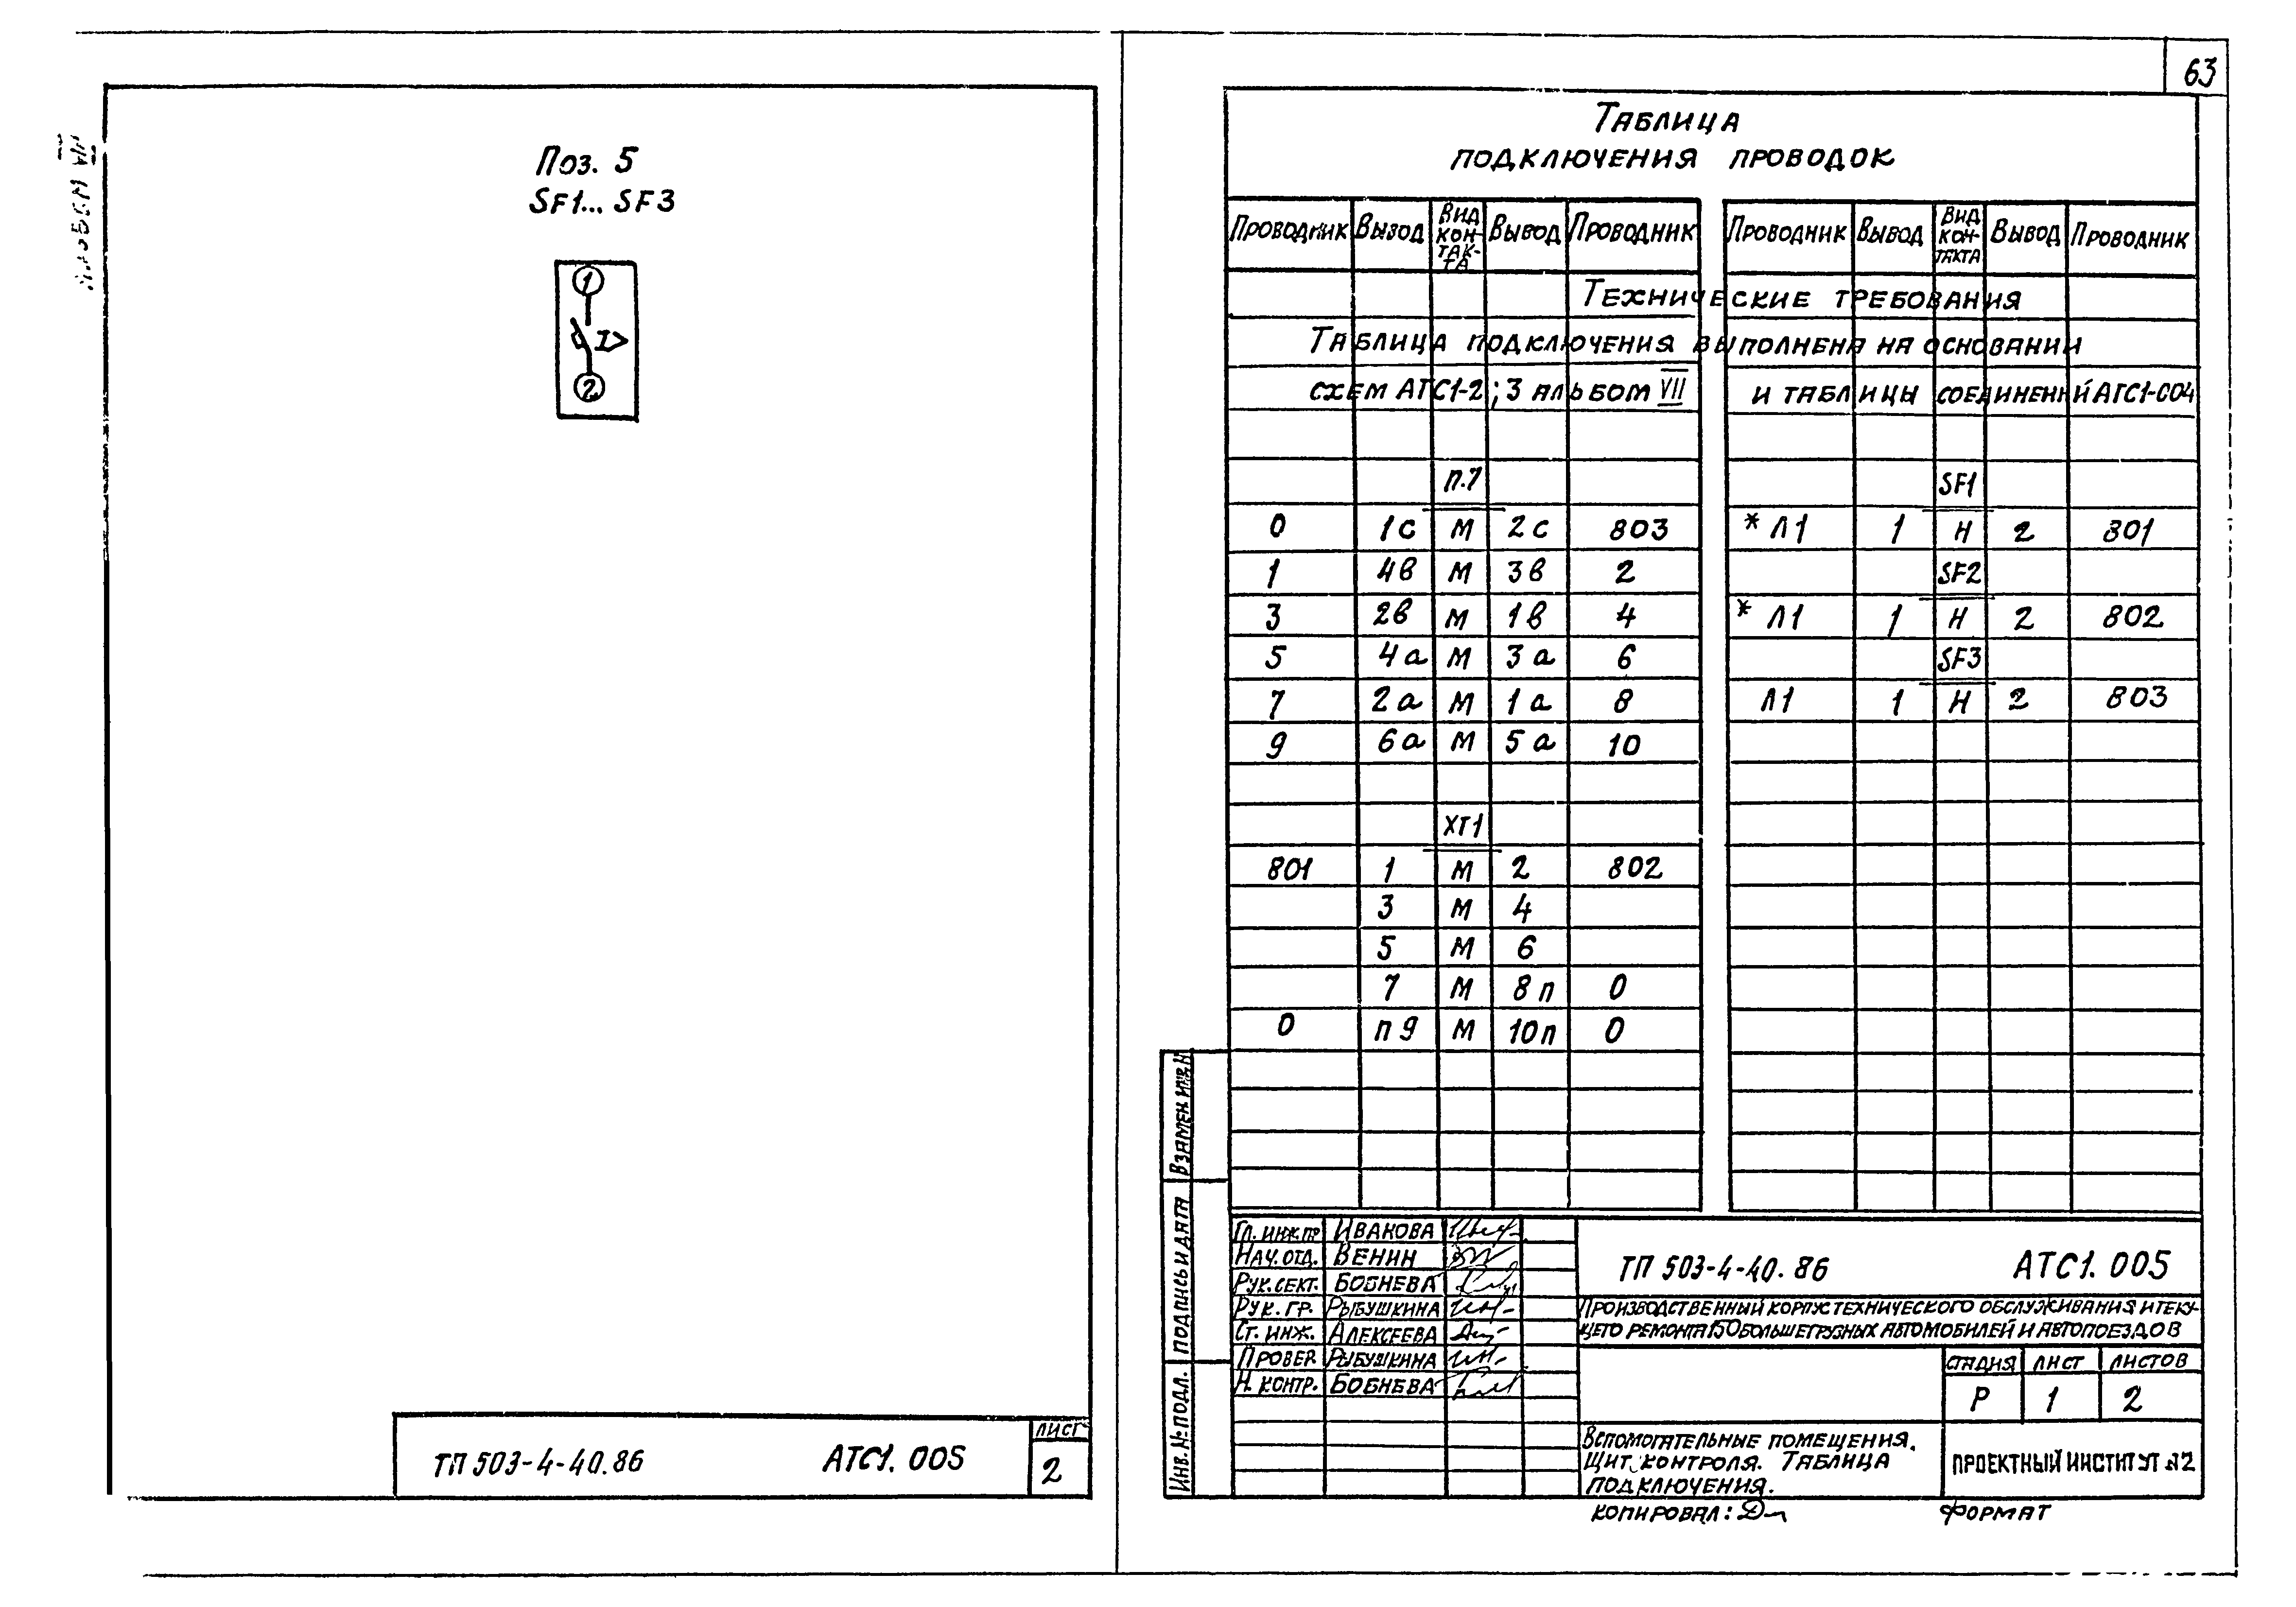 63
Альбом VII
Поз. 5
SF1... SF3
1
I>
2
ТП 503-4-40.86 АТС1. 005
лист
2
Таблица
подключения проводок
Проводник Вывод Вид контакта Вывод Проводник
Проводник Вывод Вид контакта Вывод Проводник
Технические требования
Таблица подключения выполнена на основании
схем АТС1-2; 3 альбом VII и таблицы соединений АТС1-004
п.7
0 1с М 2с 803
1 4в М 3в 2
3 2в М 1в 4
5 4а М 3а 6
7 2а М 1а 8
9 6а М 5а 10
ХТ1
801 1 М 2 802
3 М 4
5 М 6
7 М 8п 0
0 п9 М 10п 0
SF1
* Л1 1 Н 2 801
SF2
* Л1 1 Н 2 802
SF3
Л1 1 Н 2 803
Взамен инв.N
Подпись и дата
Инв. N: подл.
Гл. инж.пр Ивакова
Нач. отд. Венин
Рук. сект. Бобнева
Рук. гр. Рыбушкина
Ст. инж. Алексеева
Провер. Рыбушкина
Н. контр. Бобнева
ТП 503-4-40.86 АТС1. 005
Производственный корпус технического обслуживания и теку-
щего ремонта 150 большегрузных автомобилей и автопоездов
стадия лист листов
Р 1 2
Вспомогательные помещения.
Щит контроля. Таблица
подключения.
Проектный институт №2
копировал: формат